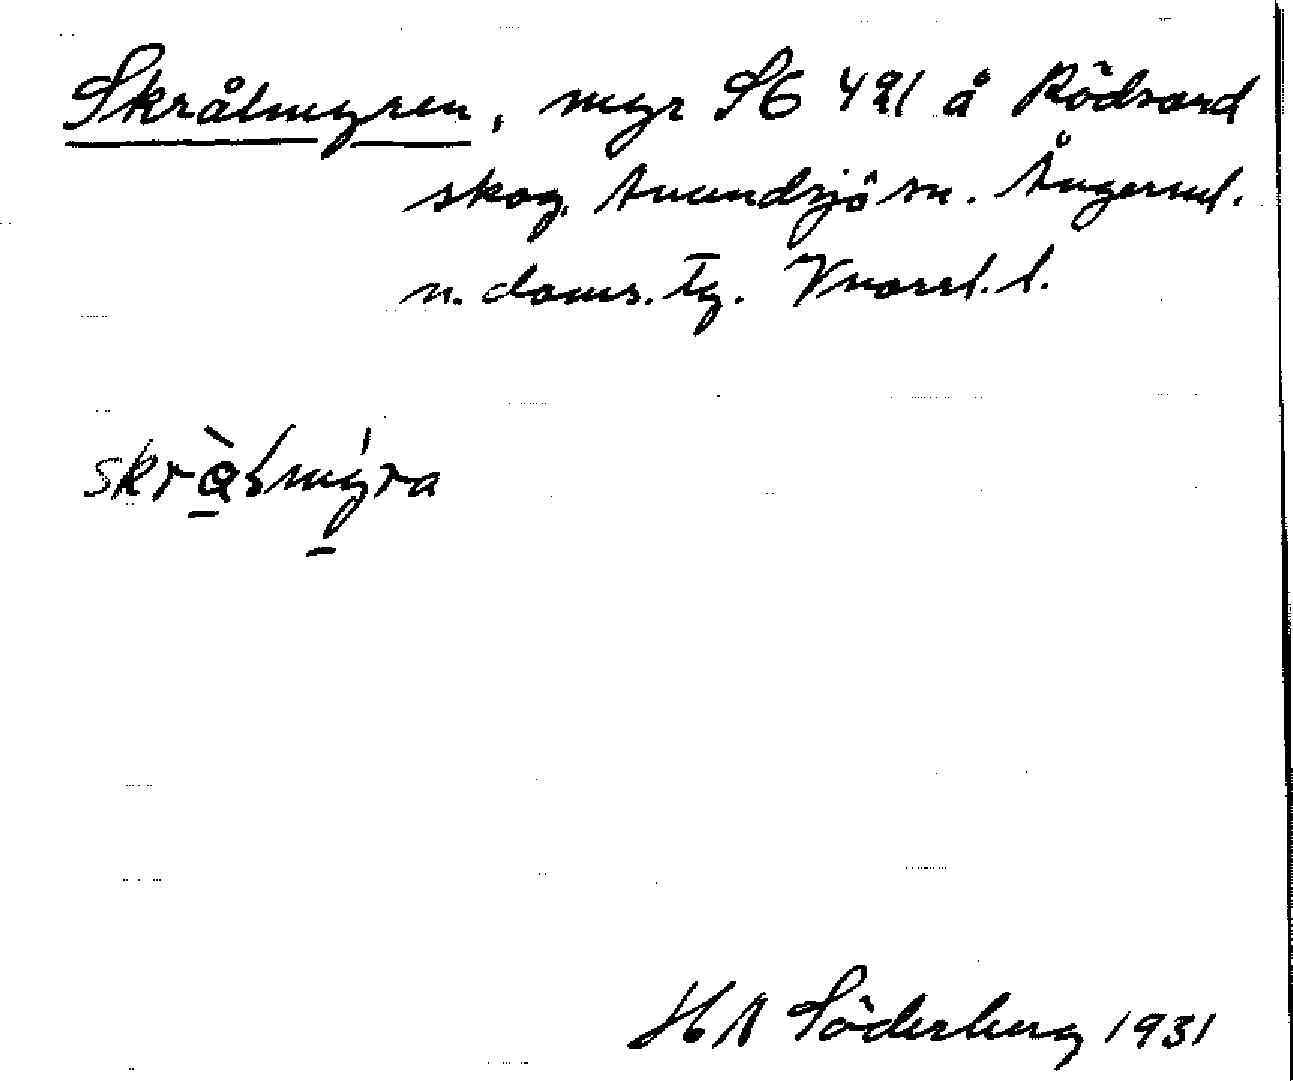 Skrålmyren, myr SG 421 å Rödvard
skog, Anundsjö sn. Ångerml.
n. doms. tg. Vnorrl. l.
skrålmyra
HN Söderberg 1931